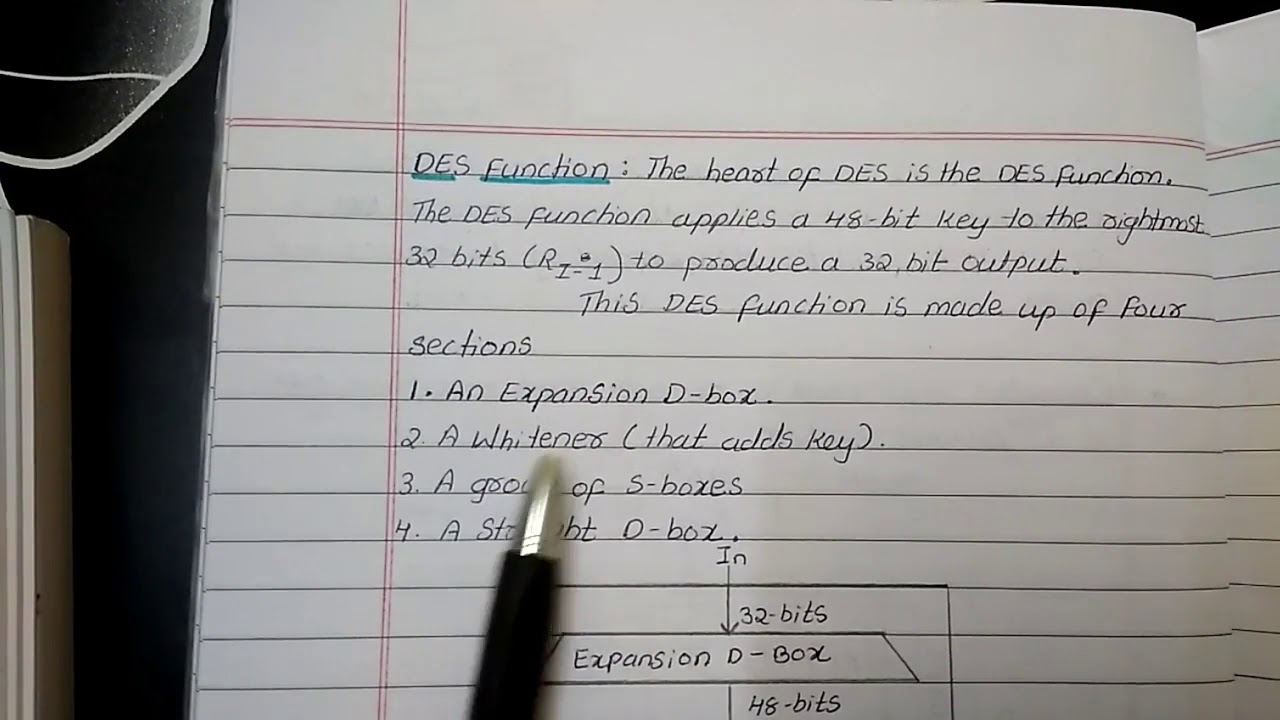 DES Function: The heart of DES is the DES function.
The DES function applies a 48-bit key to the rightmost
32 bits (R_I-1) to produce a 32 bit output.
This DES function is made up of four
sections
1. An Expansion D-box.
2. A Whitener (that adds key).
3. A of S-boxes
4. A D-box.
In
32-bits
Expansion D-Box
48-bits